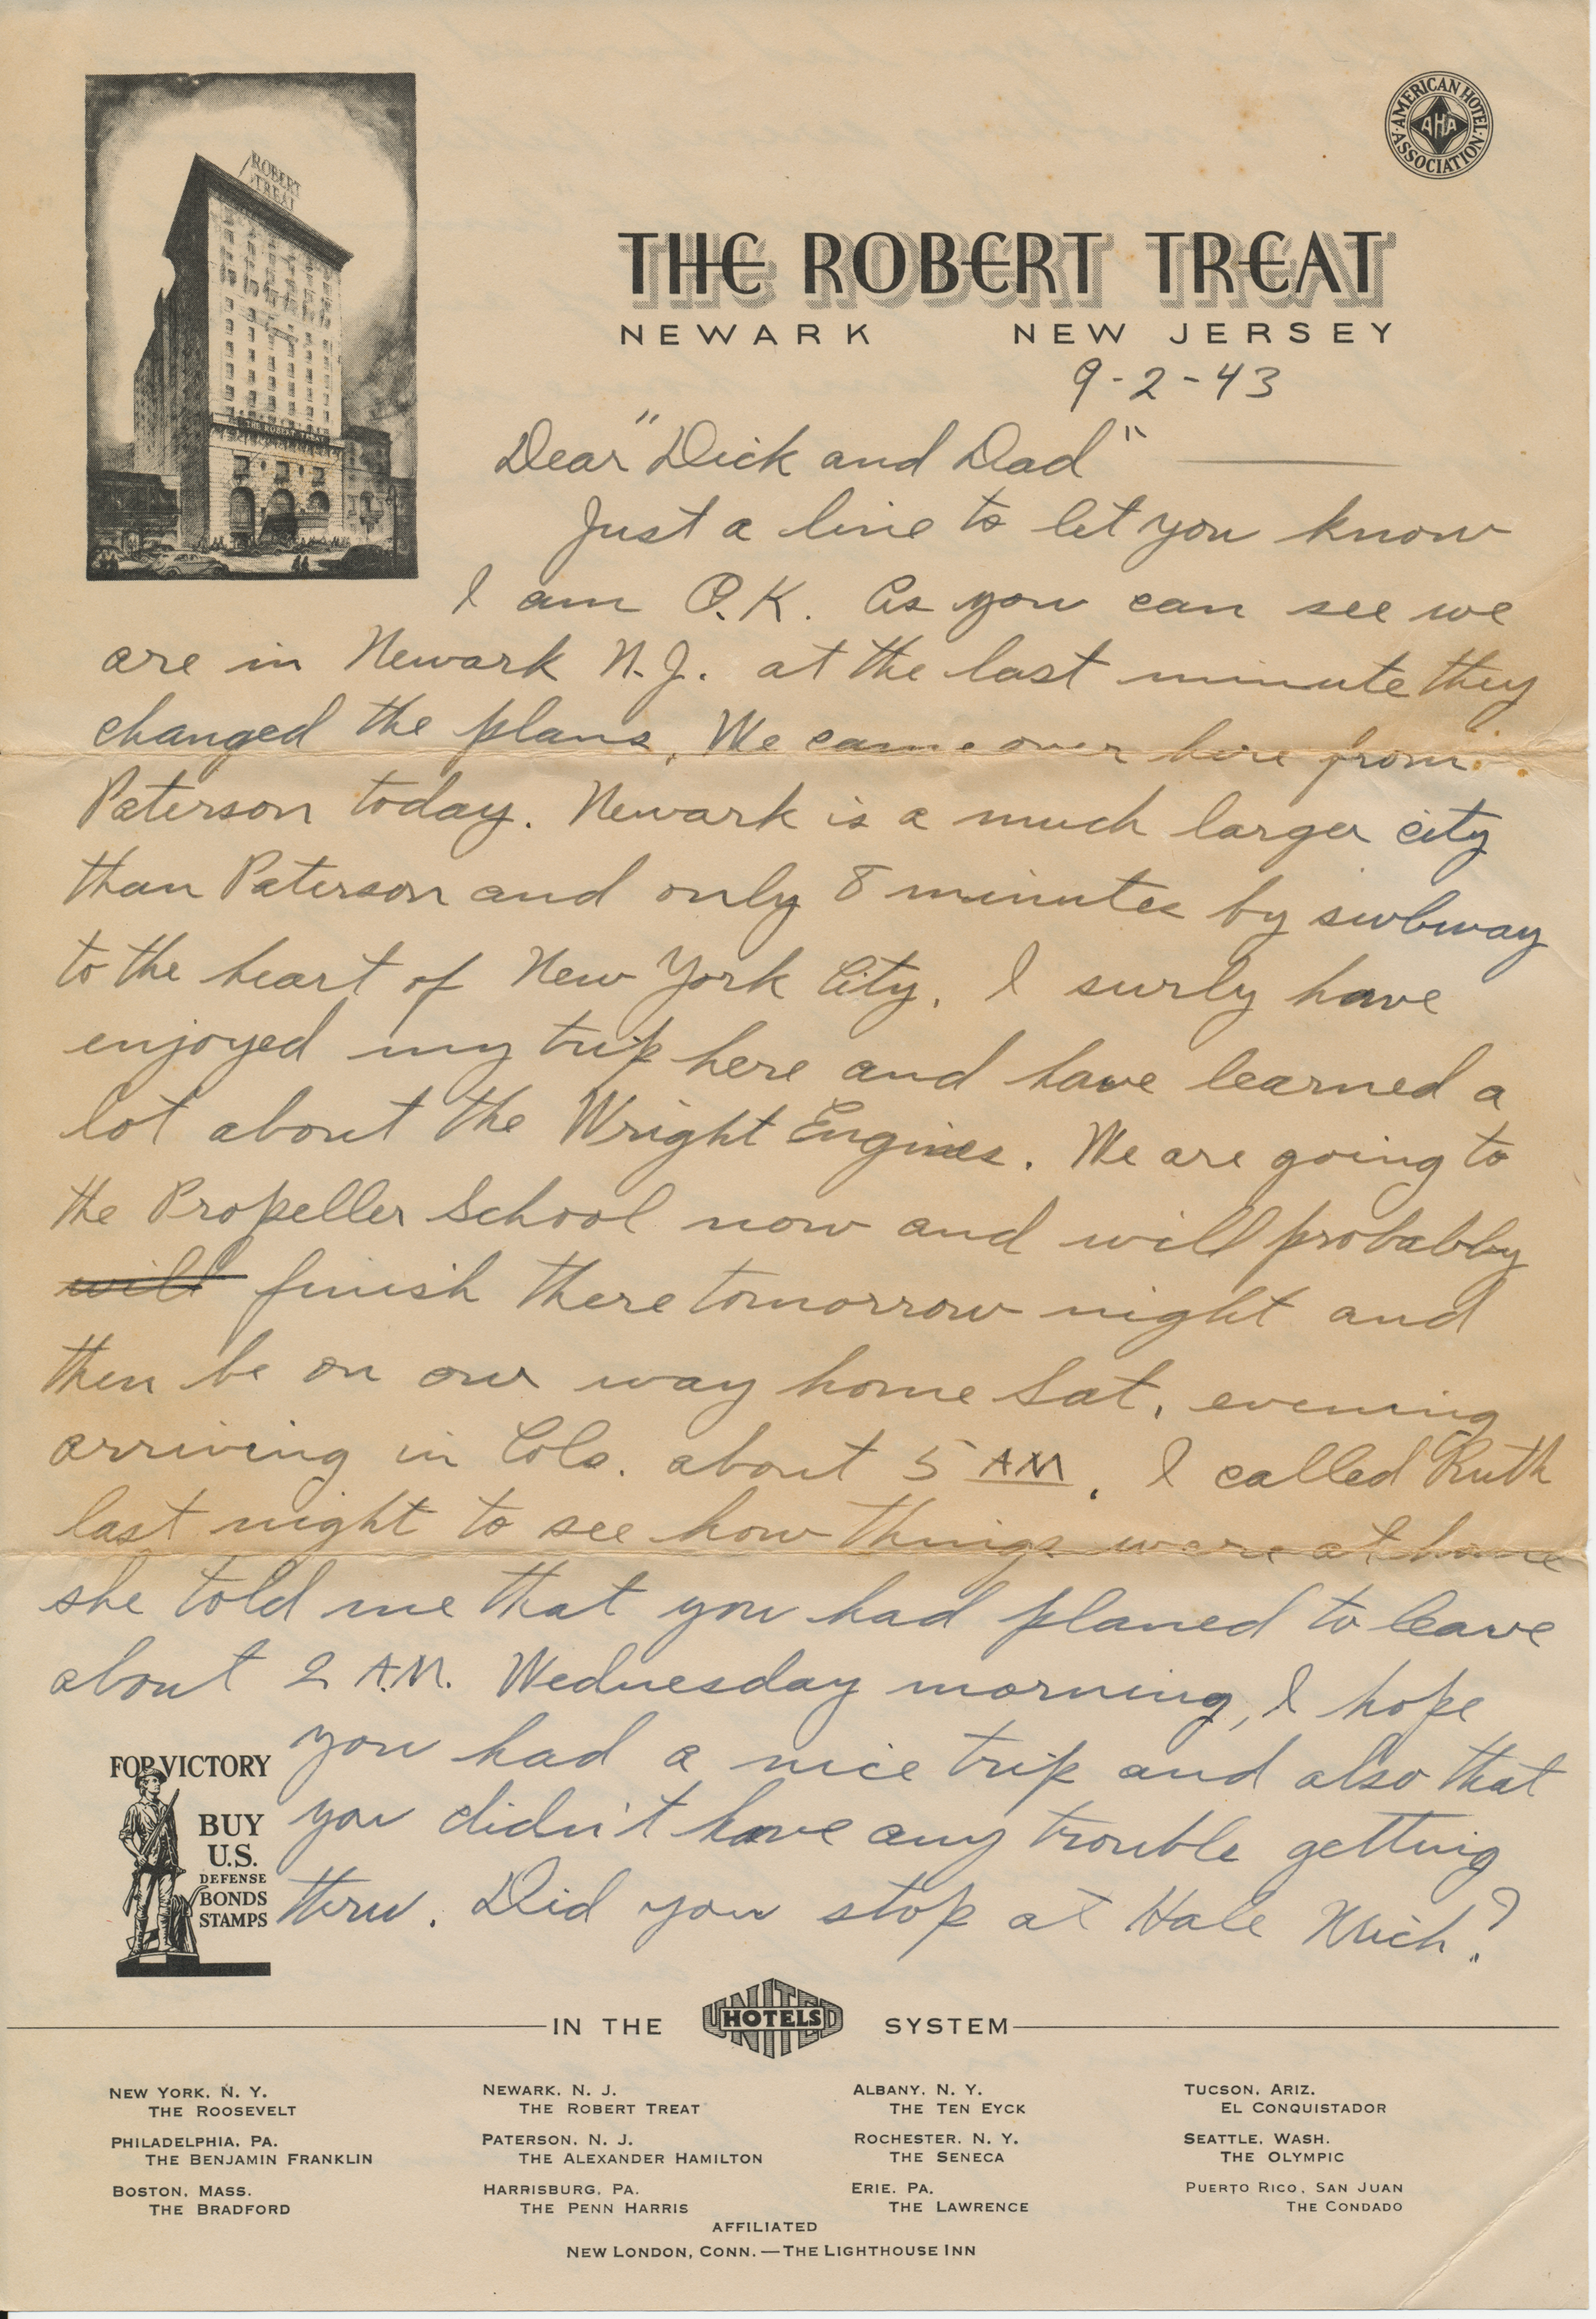 ROBERT
TREAT
THE ROBERT TREAT
AMERICAN HOTEL ASSOCIATION
AHA
THE ROBERT TREAT
NEWARK NEW JERSEY
9-2-43
Dear "Dick and Dad"
Just a line to let you know
I am O.K. As you can see we
are in Newark N.J. at the last minute they
changed the plans. We came over here from
Paterson today. Newark is a much larger city
than Paterson and only 8 minutes by subway
to the heart of New York City. I surly have
enjoyed my trip here and have learned a
lot about the Wright Engines. We are going to
the Propeller School now and will probabbly
will finish there tomorrow night and
then be on our way home Sat. evening
arriving in Cols. about 5 AM. I called Ruth
last night to see how things were at home
she told me that you had planed to leave
about 2 A.M. Wednesday morning, I hope
you had a nice trip and also that
you didn't have any trouble getting
thru. Did you stop at Hale Mich?
FOR VICTORY
BUY
U.S.
DEFENSE
BONDS
STAMPS
IN THE UNITED HOTELS SYSTEM
NEW YORK, N. Y.
THE ROOSEVELT
PHILADELPHIA, PA.
THE BENJAMIN FRANKLIN
BOSTON, MASS.
THE BRADFORD
NEWARK, N. J.
THE ROBERT TREAT
PATERSON, N. J.
THE ALEXANDER HAMILTON
HARRISBURG, PA.
THE PENN HARRIS
ALBANY, N. Y.
THE TEN EYCK
ROCHESTER, N. Y.
THE SENECA
ERIE, PA.
THE LAWRENCE
TUCSON, ARIZ.
EL CONQUISTADOR
SEATTLE, WASH.
THE OLYMPIC
PUERTO RICO, SAN JUAN
THE CONDADO
AFFILIATED
NEW LONDON, CONN.—THE LIGHTHOUSE INN